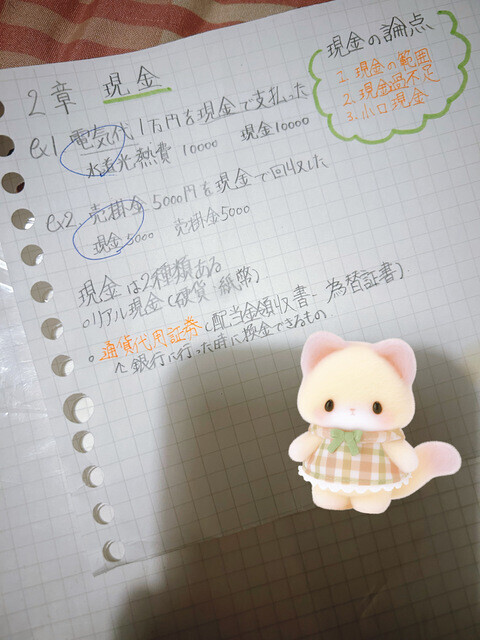 2章 現金
現金の論点
1. 現金の範囲
2. 現金過不足
3. 小口現金
ex1 電気代1万円を現金で支払った
水道光熱費 10000 現金10000
ex2. 売掛金5000円を現金で回収した
現金5000 売掛金5000
現金は2種類ある
○リアル現金(硬貨・紙幣)
○通貨代用証券(配当金領収書、為替証書)
銀行に行った時に換金できるもの